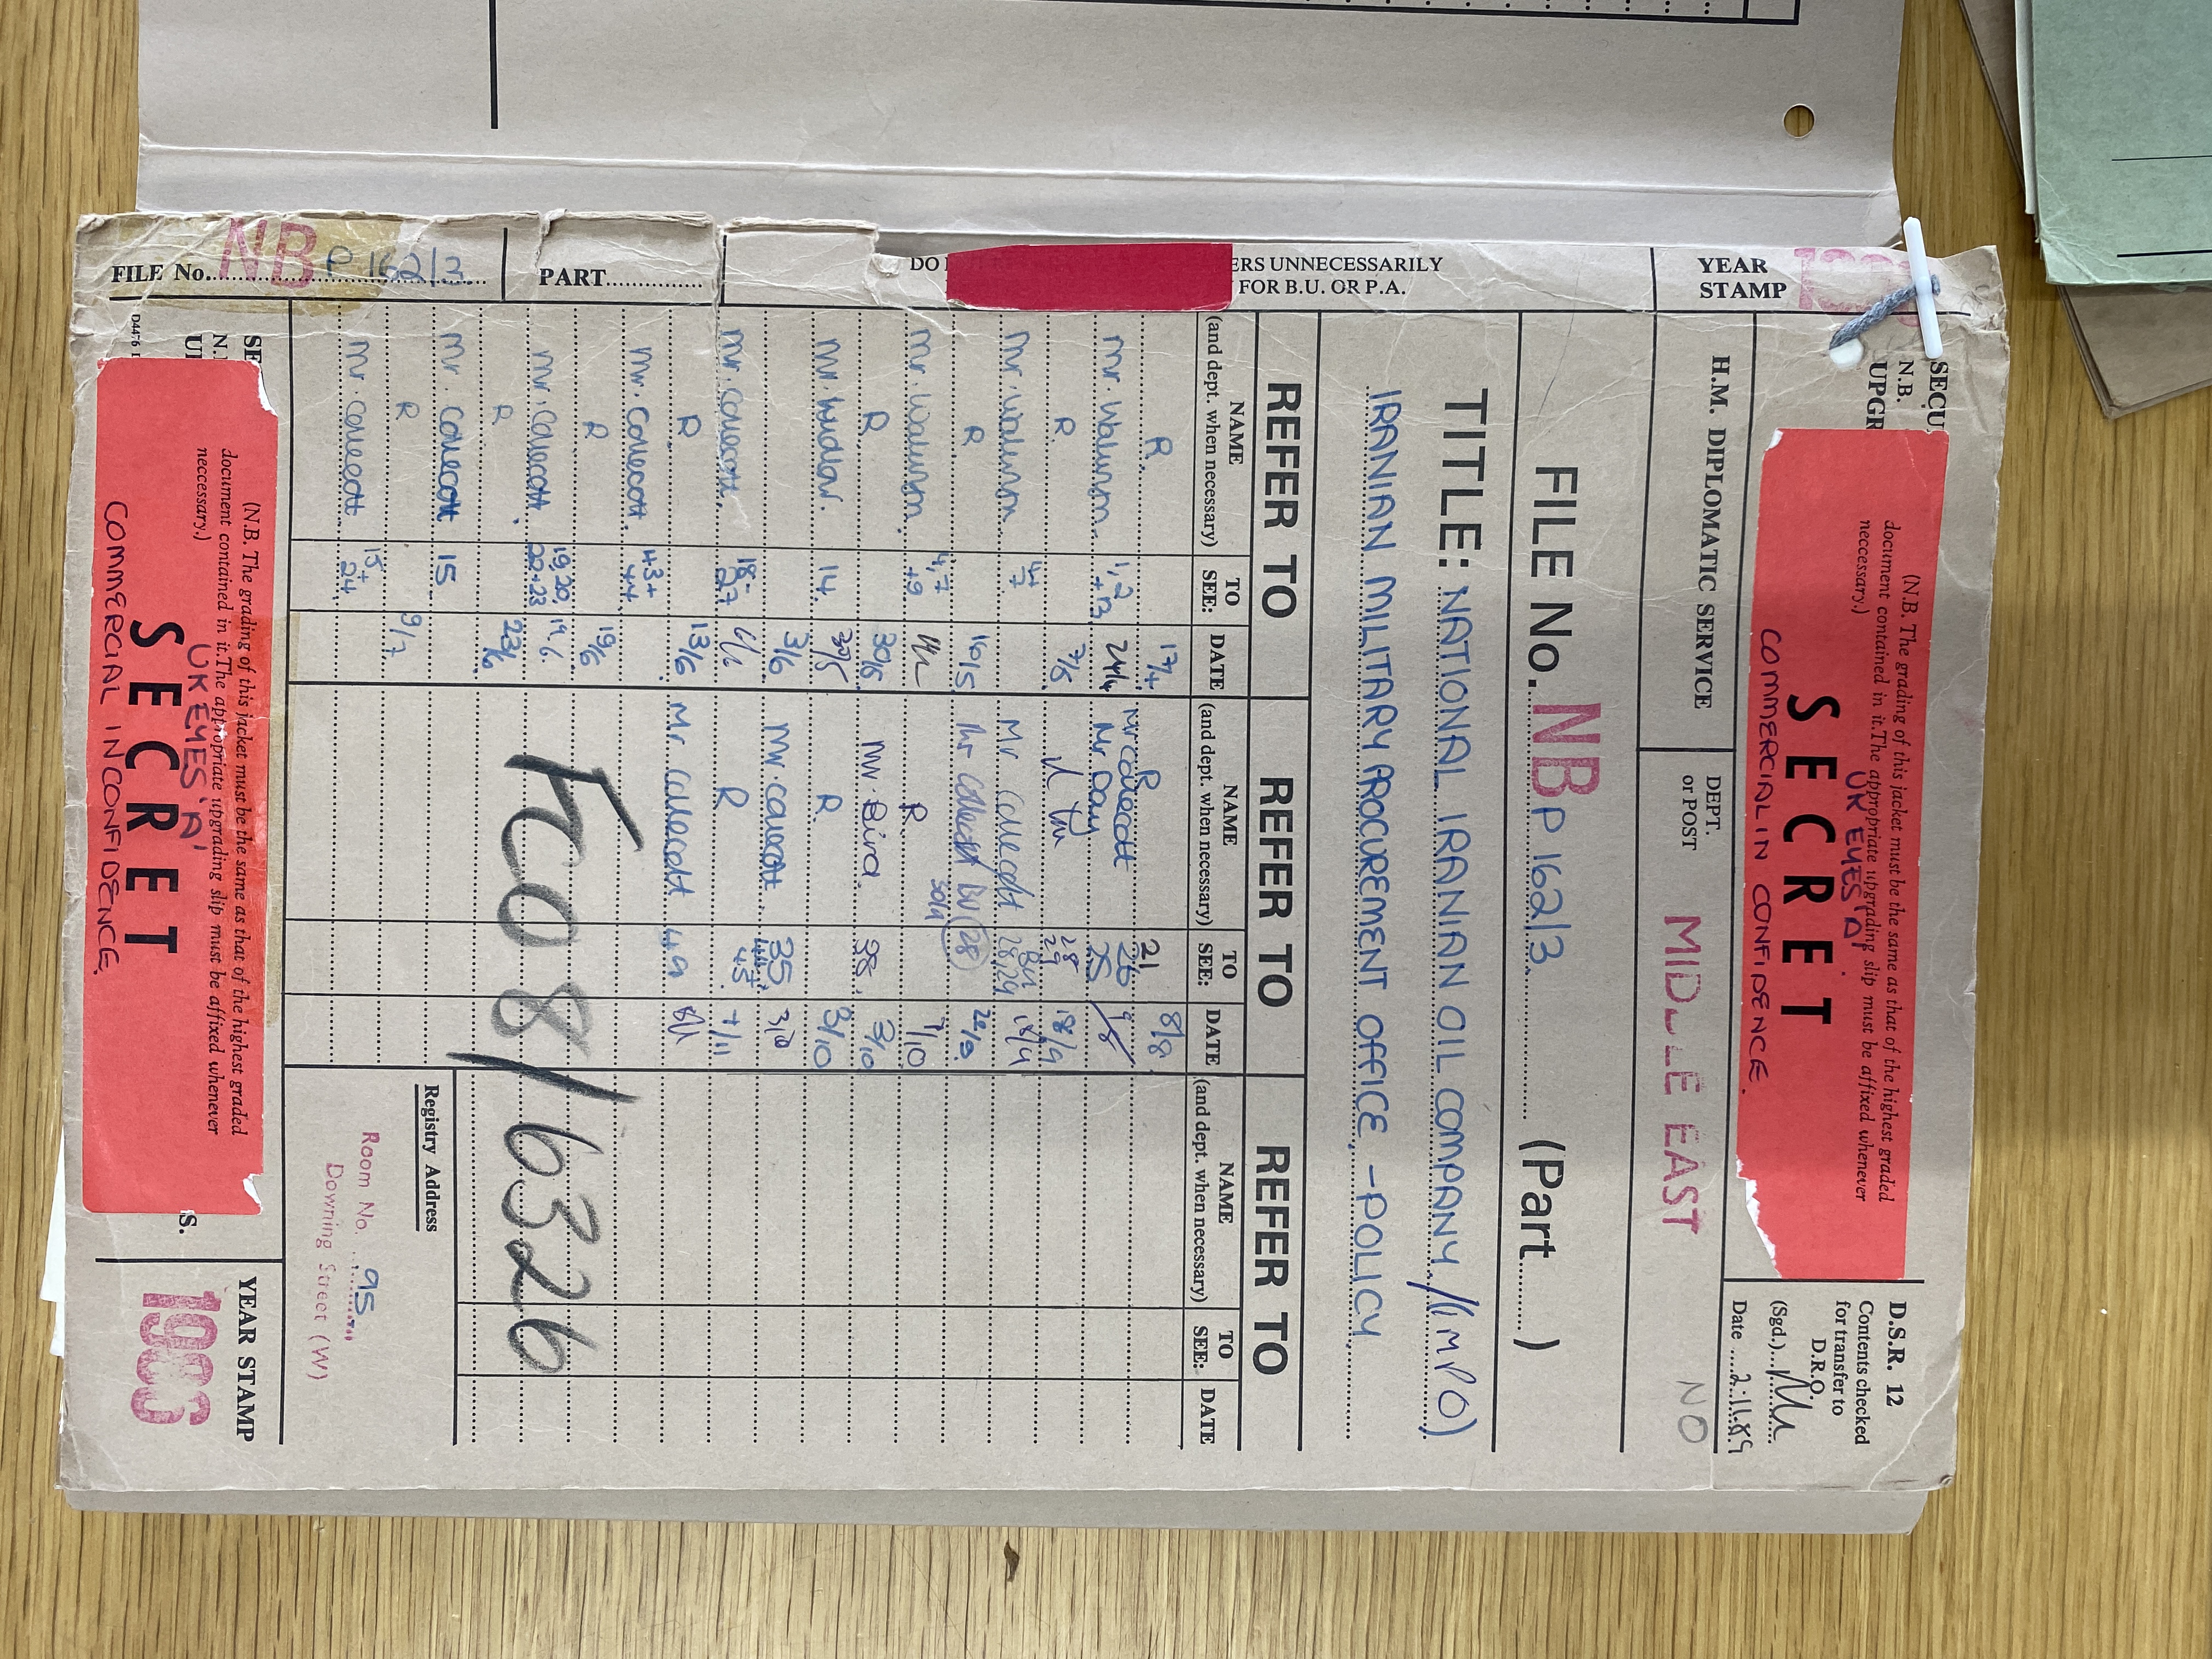 SECU
N.B.
UPGR
(N.B. The grading of this jacket must be the same as that of the highest graded
document contained in it. The appropriate upgrading slip must be affixed whenever
neccessary.)
UK EYES 'A'
SECRET
COMMERCIAL IN CONFIDENCE.
D.S.R. 12
Contents checked
for transfer to
D.R.O.
(Sgd.)
Date 2.11.89
YEAR
STAMP
H.M. DIPLOMATIC SERVICE
DEPT.
or POST
MIDDLE EAST
NO
FILE No. NBP 162/3 (Part ......)
TITLE: NATIONAL IRANIAN OIL COMPANY/(IMPO)
IRANIAN MILITARY PROCUREMENT OFFICE, - POLICY
DO
ERS UNNECESSARILY
FOR B.U. OR P.A.
REFER TO REFER TO REFER TO
NAME
(and dept. when necessary)
TO
SEE:
DATE
NAME
(and dept. when necessary)
TO
SEE:
DATE
NAME
(and dept. when necessary)
TO
SEE:
DATE
R 17/4
Mr. 1, 2 + 13 24/4
R 7/5
Mr. 4+7
R 16/5
Mr. 4, 7 +9
R 30/5
Mr. 14
3/6
Mr. Colecott 18- 27
R 13/6
Mr. Colecott 43+ 44
R 19/6
Mr. Colecott 19, 20, 22+23 19.6.
R 23/6
Mr. Colecott 15
R 9/7
Mr. Colecott 15+ 24
R 21 8/8
Mr Colecott 26
Mr Day 25
28 29 18/9
Mr Colecott BU 28, 29 18/9
Mr Colecott BU (28)
R 7/10
Mr. Bird. 38. 3/10
R 3/10
Mr. Colecott 35 3/10
R 44+ 45 7/11
Mr Colecott 49
FCO 8/6326
Registry Address
Room No. 95
Downing Street (W)
FILE No. NBP 162/3
PART
D4476
SE
N.
UP
(N.B. The grading of this jacket must be the same as that of the highest graded
document contained in it. The appropriate upgrading slip must be affixed whenever
neccessary.)
UK EYES 'A'
SECRET
COMMERCIAL IN CONFIDENCE.
S.
YEAR STAMP
1986